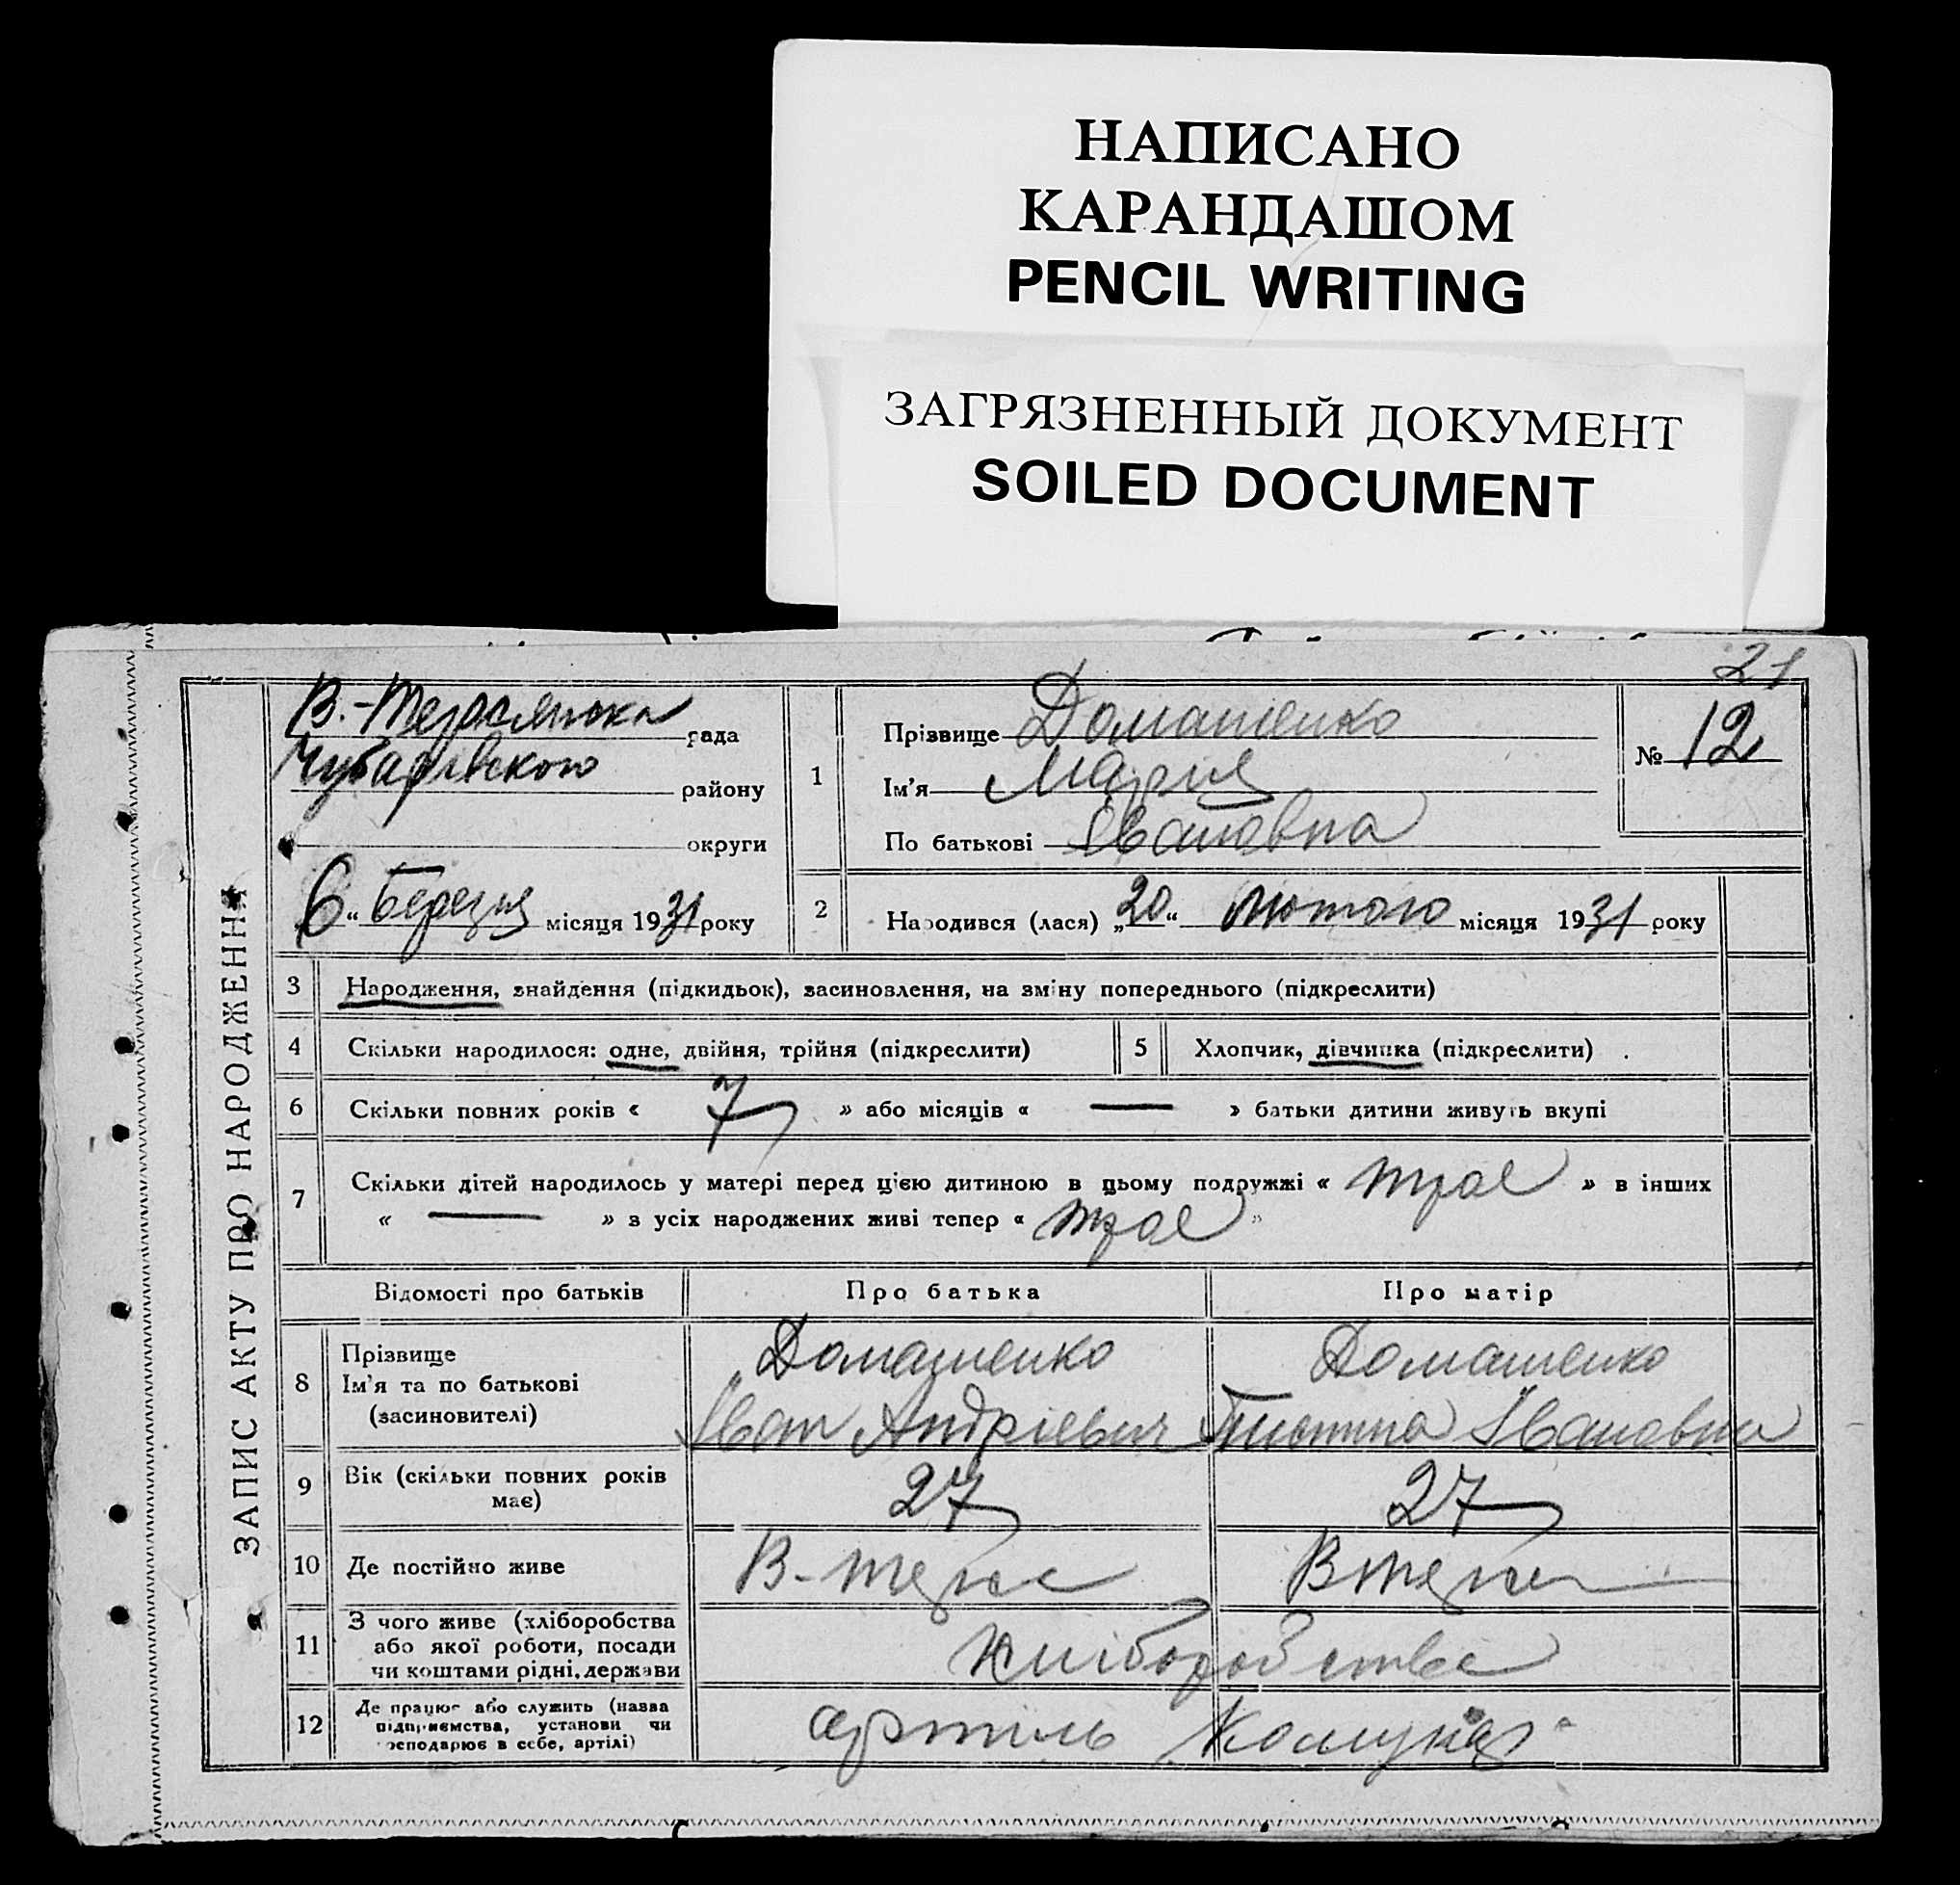 НАПИСАНО
КАРАНДАШОМ
PENCIL WRITING
ЗАГРЯЗНЕННЫЙ ДОКУМЕНТ
SOILED DOCUMENT
21
ЗАПИС АКТУ ПРО НАРОДЖЕННЯ
В.-Терсянська рада
Чубарівського району
округи
6 " Березня місяця 1931 року
1
Прізвище Домашенко
Ім'я Марія
По батькові Івановна
№ 12
2 Народився (лася) „20" лютого місяця 1931 року
3 Народження, знайдення (підкидьок), засиновлення, на зміну попереднього (підкреслити)
4 Скільки народилося: одне, двійня, трійня (підкреслити) 5 Хлопчик, дівчинка (підкреслити)
6 Скільки повних років « 7 » або місяців « — » батьки дитини живуть вкупі
7 Скільки дітей народилось у матері перед цією дитиною в цьому подружжі « трое » в інших
« — » з усіх народжених живі тепер « трое »
Відомості про батьків Про батька Про матір
8 Прізвище Домашенко Домашенко
Ім'я та по батькові
(засиновителі) Іван Андріевич Івановна
9 Вік (скільки повних років має) 27 27
10 Де постійно живе В-Терсе В Терсе
11 З чого живе (хліборобства
або якої роботи, посади
чи коштами рідні, держави Хліборобства
12 Де працює або служить (назва
підприємства, установи чи
господарює в себе, артілі) артиль